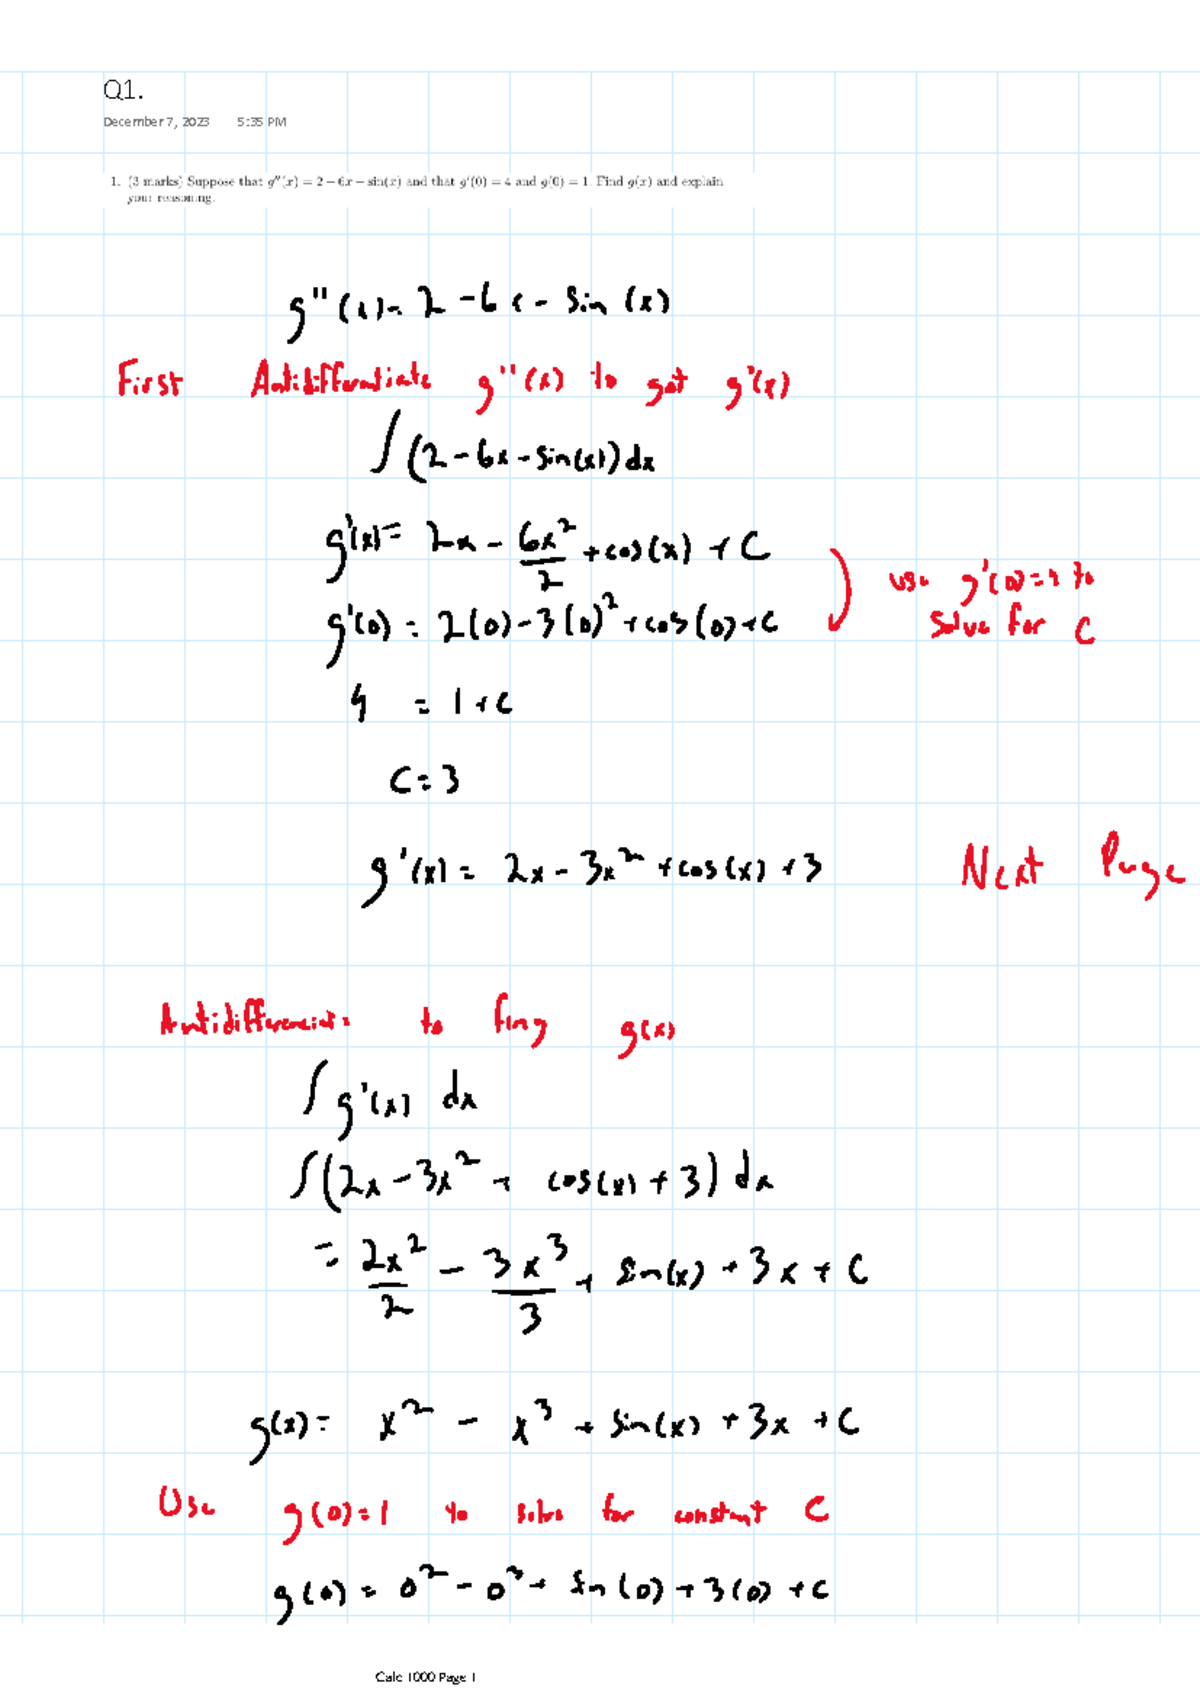 Q1.
December 7, 2023 5:35 PM
1. (3 marks) Suppose that g''(x) = 2 − 6x − sin(x) and that g'(0) = 4 and g(0) = 1. Find g(x) and explain
your reasoning.
g''(x) = 2 - 6x - sin(x)
First Antidifferentiate g''(x) to get g'(x)
∫(2 - 6x - sin(x))dx
g'(x) = 2x - 6x²/2 + cos(x) + C
use g'(0) = 4 to
g'(0) = 2(0) - 3(0)² + cos(0) + C
solve for C
4 = 1 + C
C = 3
g'(x) = 2x - 3x² + cos(x) + 3
Next Page
Antidifferentiate to fing g(x)
∫g'(x) dx
∫(2x - 3x² + cos(x) + 3) dx
= 2x²/2 - 3x³/3 + sin(x) + 3x + C
g(x) = x² - x³ + sin(x) + 3x + C
Use g(0) = 1 to solve for constant C
g(0) = 0² - 0³ + sin(0) + 3(0) + C
Calc 1000 Page 1